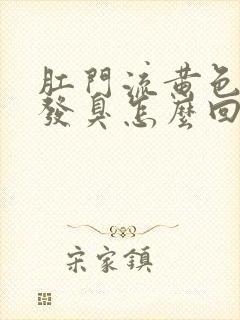 肛門流黃色
發臭怎麼回
宋家鎮